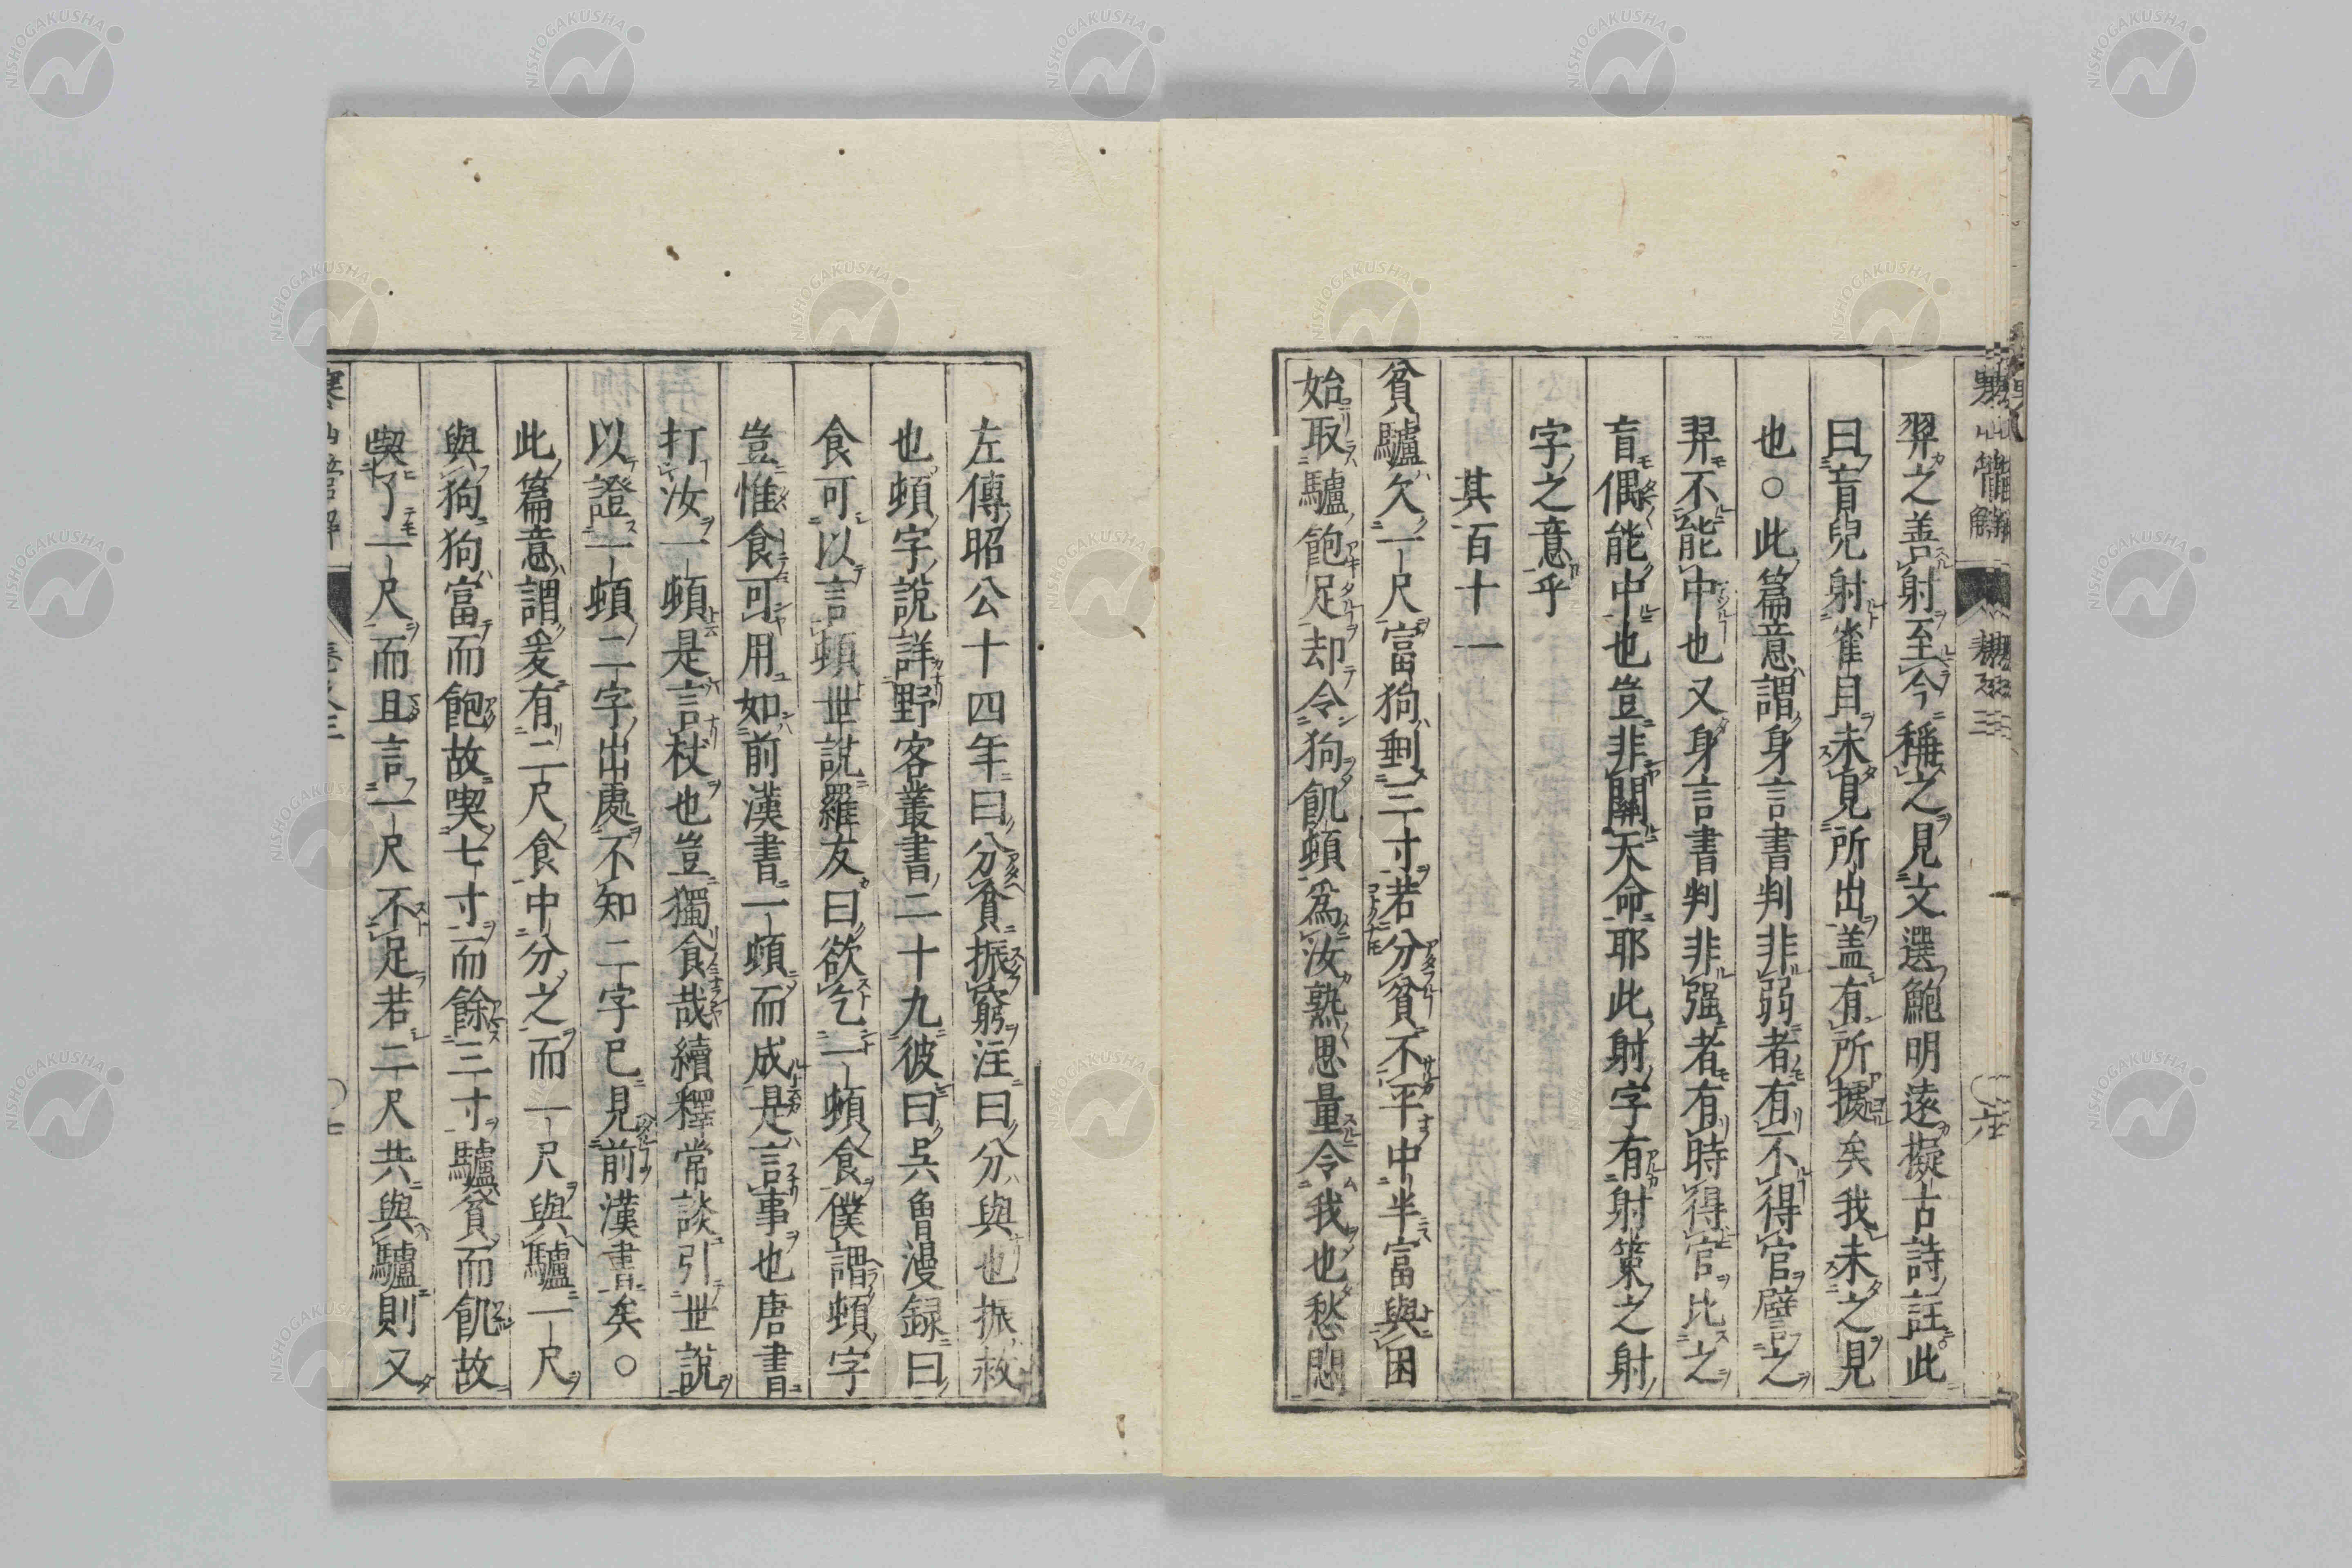 羿之善射至今稱之見文選鮑明遠擬古詩註此
曰盲兒射雀目未見所出盖有所據矣我未之見
也○此篇意謂身言書判非弱者有不得官譬之
羿不能中也又身言書判非强者有時得官比之
盲偶能中也豈非關天命耶此射字有射策之射
字之意乎
其百十一
貧驢欠一尺富狗剰三寸若分貧不平中半富與困
始取驢飽足却令狗飢頓爲汝熟思量令我也愁悶
左傳昭公十四年曰分貧振窮注曰分與也振救
也頓字說詳野客叢書二十九彼曰吳曾漫録曰
食可以言頓世說羅友曰欲乞一頓食僕謂頓字
豈惟食可用如前漢書一頓而成是言事也唐書
打汝一頓是言杖也豈獨食哉續釋常談引世說
以證一頓二字出處不知二字已見前漢書矣○
此篇意謂爰有二尺食中分之而一尺與驢一尺
與狗狗富而飽故喫七寸而餘三寸驢貧而飢故
喫了一尺而且言一尺不足若二尺共與驢則又
NISHOGAKUSHA